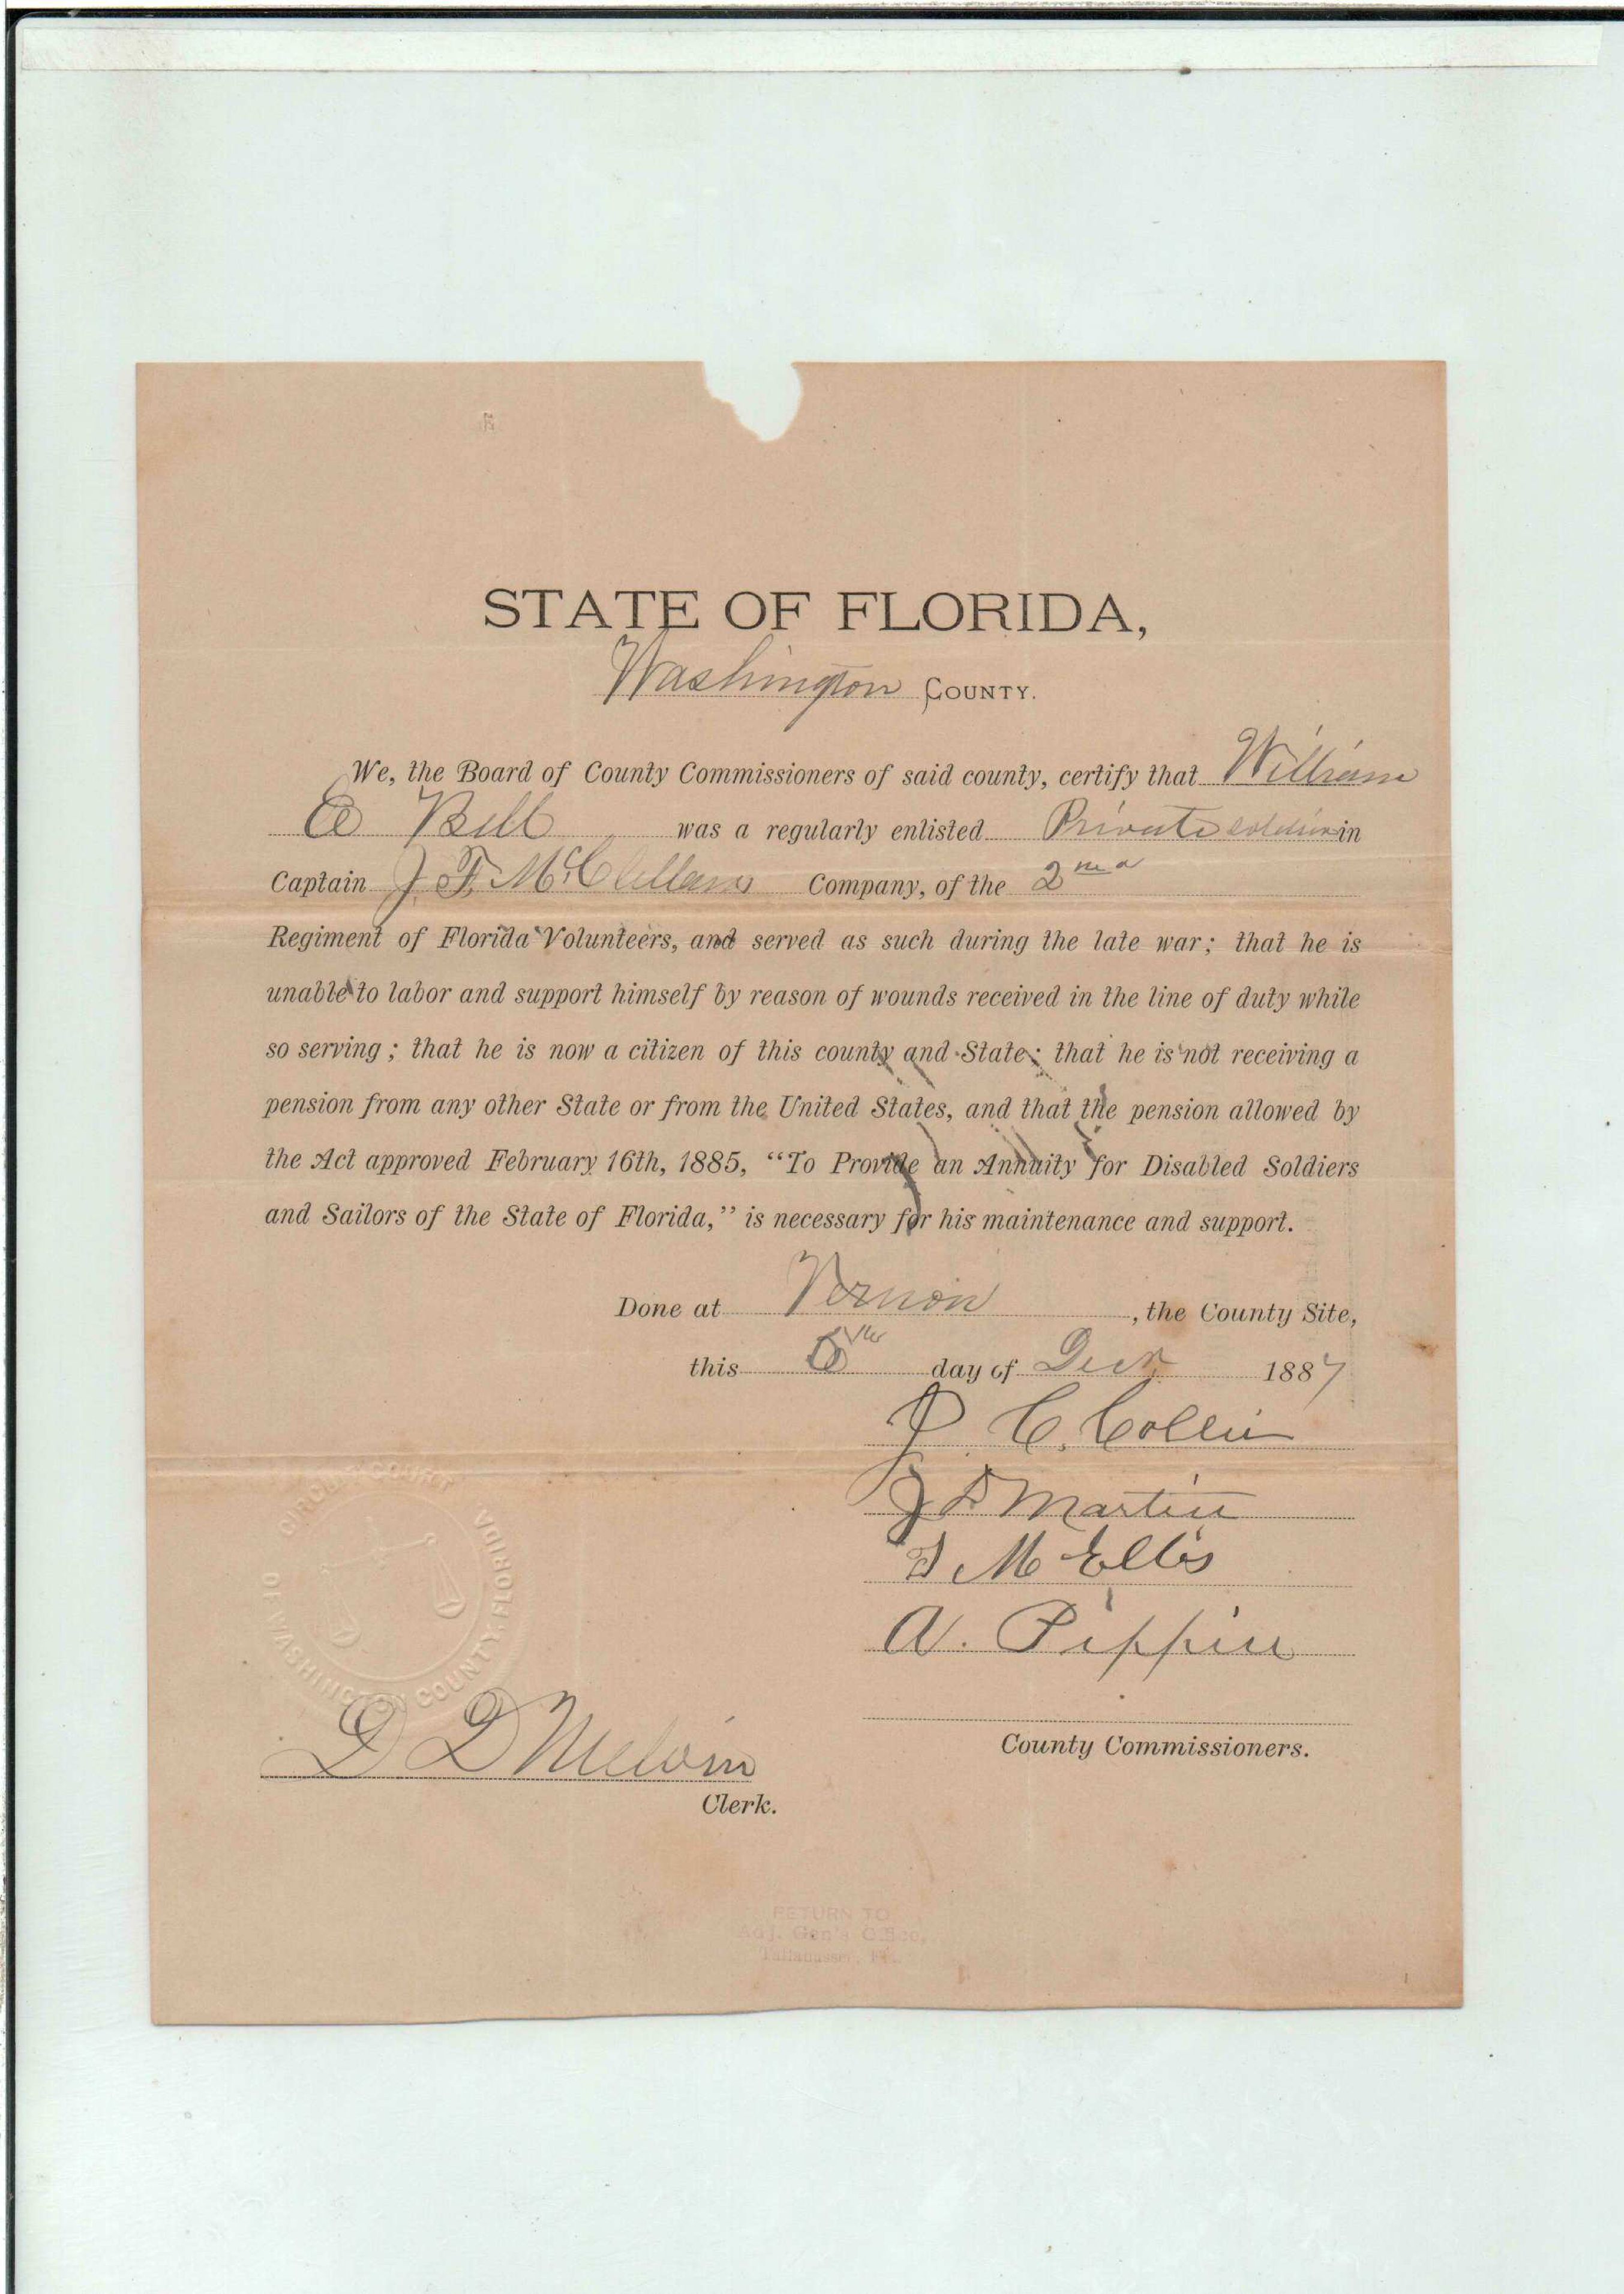 STATE OF FLORIDA,
Washington COUNTY.
We, the Board of County Commissioners of said county, certify that William
Bell was a regularly enlisted Private soldier in
Captain J. F. McClellans Company, of the 2nd
Regiment of Florida Volunteers, and served as such during the late war; that he is
unable to labor and support himself by reason of wounds received in the line of duty while
so serving; that he is now a citizen of this county and State; that he is not receiving a
pension from any other State or from the United States, and that the pension allowed by
the Act approved February 16th, 1885, “To Provide an Annuity for Disabled Soldiers
and Sailors of the State of Florida,” is necessary for his maintenance and support.
Done at Vernon, the County Site,
this day of Decr 1887
J. C. Collin
J D Martin
M Ellis
A. Pippin
County Commissioners.
CIRCUIT COURT
OF WASHINGTON COUNTY, FLORIDA
D D Melvin
Clerk.
RETURN TO
Adj. Gen's Office,
Tallahassee, Fla.